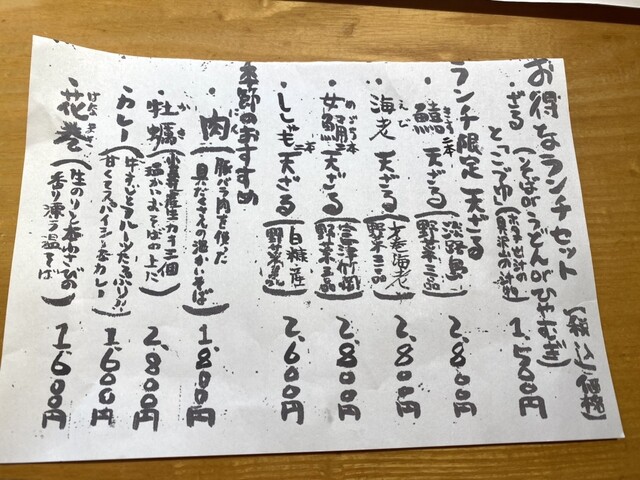 お得なランチセット
(税込価格)
・ざる(そばorうどんorひやむぎ)
と「こご巾」 1,500円
ランチ限定 天ざる
・鱚 きす 二本 天ざる(淡路島 野菜三品) 2,800円
・海老 えび 天ざる(大海老 野菜三品) 2,800円
・女鯒 めごち 二本 天ざる(富津竹岡 野菜三品) 2,800円
・ししゃも 二本 天ざる(白糠産 野菜三品) 2,600円
季節のおすすめ
・肉 にく(豚バラ肉を使った 具だくさんの温かいそば) 1,800円
・牡蠣 かき(産カキ三個 温かいおそばの上に) 2,800円
・カレー(牛すじとフルーツたっぷり!! 甘くてスパイシーなカレー) 1,600円
・花巻 はなまき(生のりと本わさびの 香り漂う温そば) 1,600円